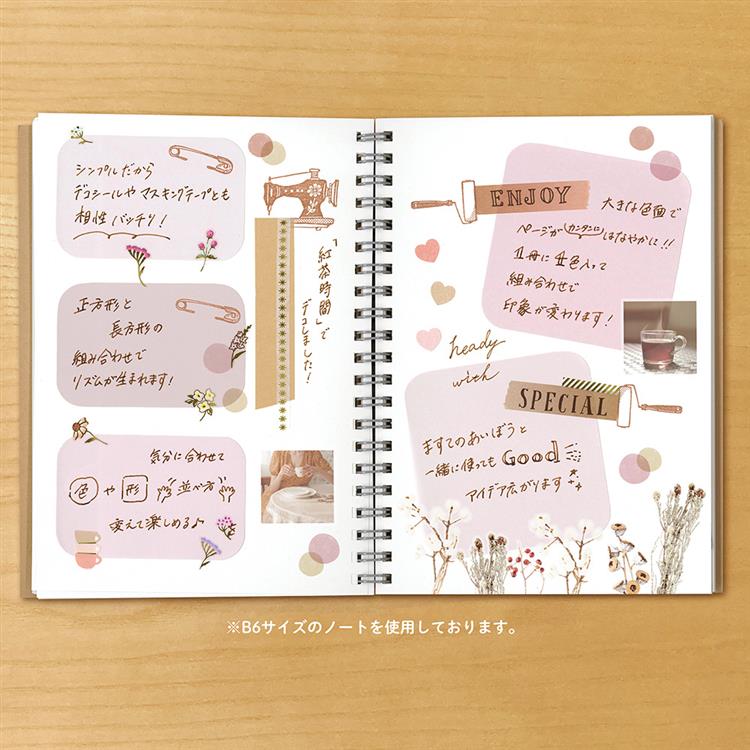 シンプルだから
デコシールや マスキングテープとも
相性 バッチリ!
正方形と
長方形の
組み合わせで
リズムが生まれます!
気分に合わせて
色 や 形 並べ方
変えて楽しめる♪
「紅茶時間」で
デコしました!
ENJOY
大きな色面で
ページが カンタンに はなやかに!!
1冊に 4色入って
組み合わせで
印象が変わります!
heady
with
SPECIAL
ますてのあいぼうと
一緒に使っても Good
アイデア広がります
※B6サイズのノートを使用しております。